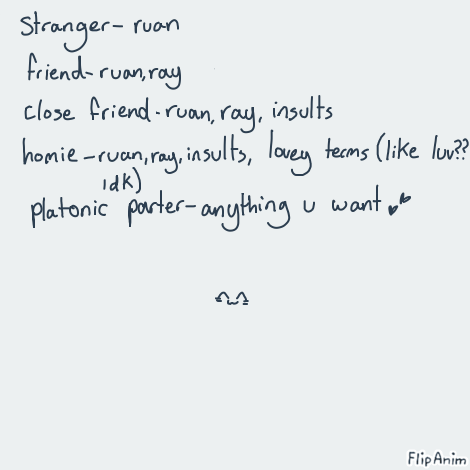 Stranger- ruan
friend- ruan,ray
close friend-ruan, ray, insults
homie-ruan,ray,insults, lovey terms (like luv??
idk)
platonic parter-anything u want
FlipAnim